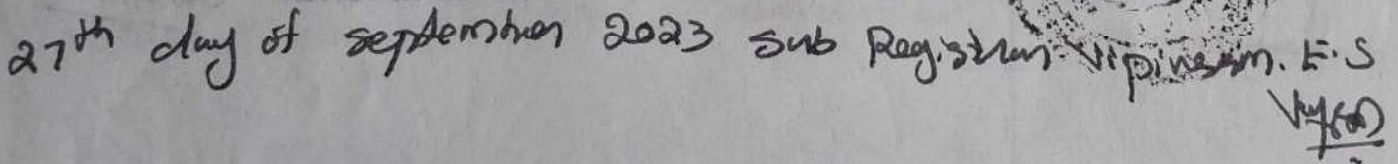 27th day of September 2023 Sub Registrar Vipinsam. E.S